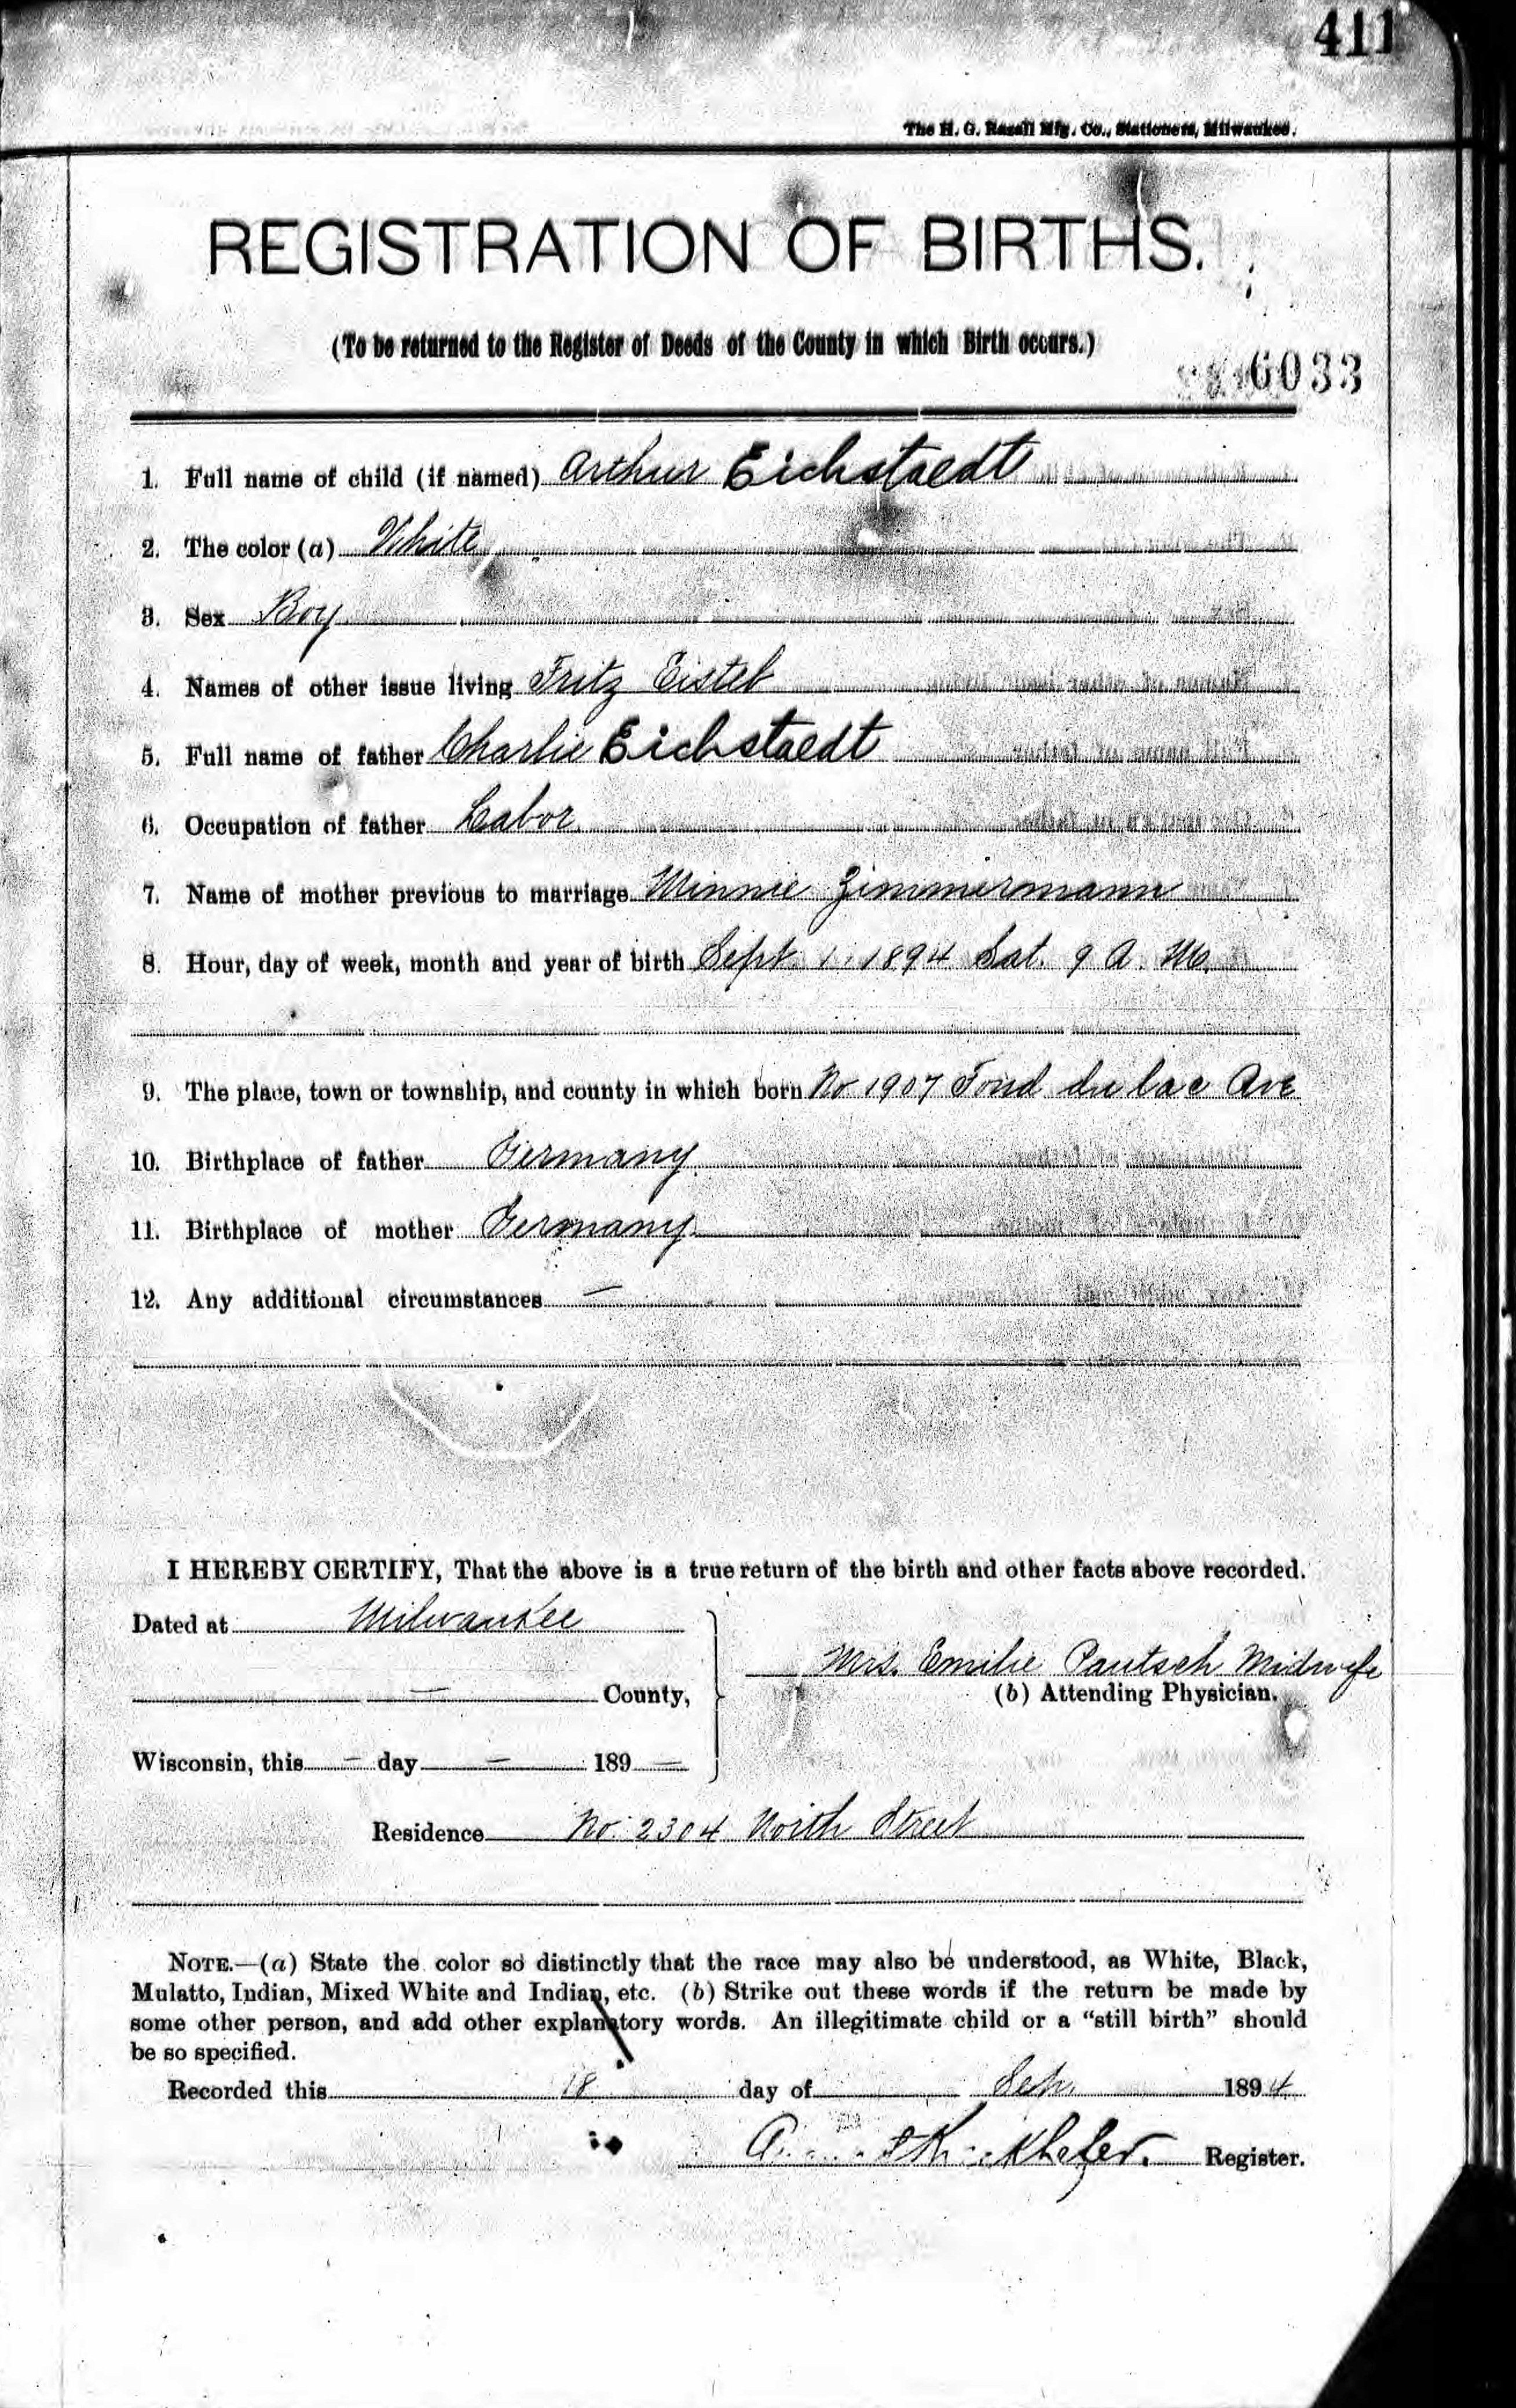 411
The H. G. Razall Mfg. Co., Stationers, Milwaukee.
REGISTRATION OF BIRTHS.
(To be returned to the Register of Deeds of the County in which Birth occurs.)
6033
1. Full name of child (if named) Arthur Eichstaedt
2. The color (a) White
3. Sex Boy
4. Names of other issue living Fritz
5. Full name of father Charlie Eichstaedt
6. Occupation of father Labor
7. Name of mother previous to marriage Minnie Zimmermann
8. Hour, day of week, month and year of birth Sept. 1. 1894 Sat. 9 A. M.
9. The place, town or township, and county in which born No 1907 Fond du lac Ave
10. Birthplace of father Germany
11. Birthplace of mother Germany
12. Any additional circumstances —
I HEREBY CERTIFY, That the above is a true return of the birth and other facts above recorded.
Dated at Milwaukee
Mrs. Emilie Pautsch Midwife
— County,
(b) Attending Physician.
Wisconsin, this — day — 189 —
Residence No. 2304 North Street
NOTE.—(a) State the color so distinctly that the race may also be understood, as White, Black,
Mulatto, Indian, Mixed White and Indian, etc. (b) Strike out these words if the return be made by
some other person, and add other explanatory words. An illegitimate child or a “still birth” should
be so specified.
Recorded this 18 day of Sep. 1894
Register.